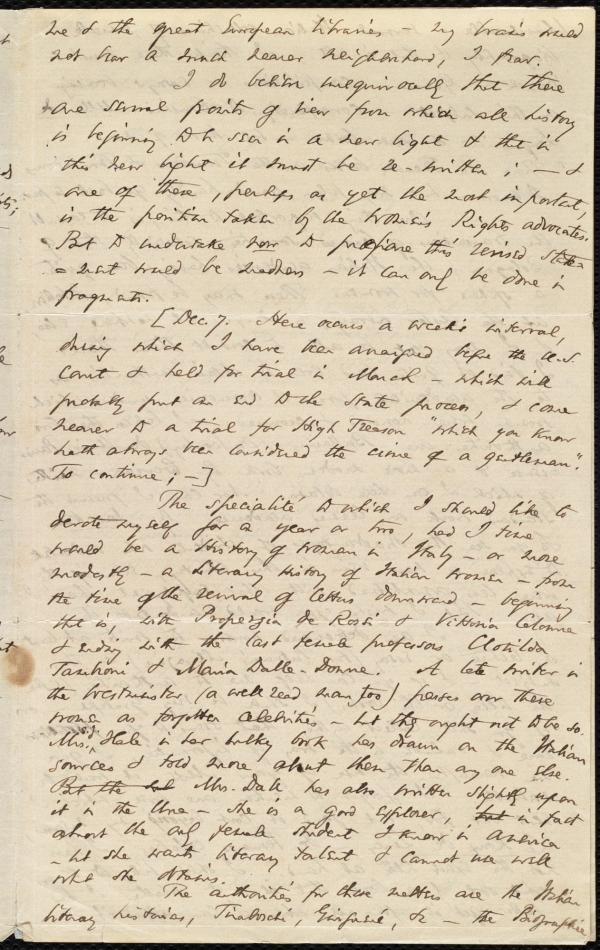 me & the great European libraries – my brain would
not bear a much nearer neighborhood, I fear.
I do believe unequivocally that there
are several points of view from which all history
is beginning to be seen in a new light & that in
this new light it must be re-written; – &
one of these, perhaps as yet the most important,
is the position taken by the Woman's Rights advocates.
But to undertake now to prepare this revised state-
-ment would be madness – it can only be done in
fragments.
[Dec. 7. Here occurs a week's interval,
during which I have been arraigned before the U.S.
Court & held for trial in March – which will
probably put an end to the State process, & come
nearer to a trial for High Treason "which you know
hath always been considered the crime of a gentleman".
To continue; –]
The specialité to which I should like to
devote myself for a year or two, had I time
would be a History of Women in Italy – or more
modestly – a Literary History of Italian Women – from
the time of the revival of letters downward – beginning
that is, with Properzia de Rossi & Vittoria Colonna
& ending with the last female professors Clotilda
Tambroni & Maria Dalle-Donne. A late writer in
the Westminster (a well read man too) passes over these
women as forgotten celebrities – but they ought not to be so.
Mrs. Hale in her bulky book has drawn on the Italian
sources & told more about them than any one else.
But the Mrs. Dall has also written slightly upon
it in the Una – she is a good explorer, but in fact
almost the only female student I know in America
– but she wants literary talent & cannot use well
what she obtains.
The authorities for these matters are the Italian
literary histories, Tiraboschi, Ginguené, &c – the Biographie